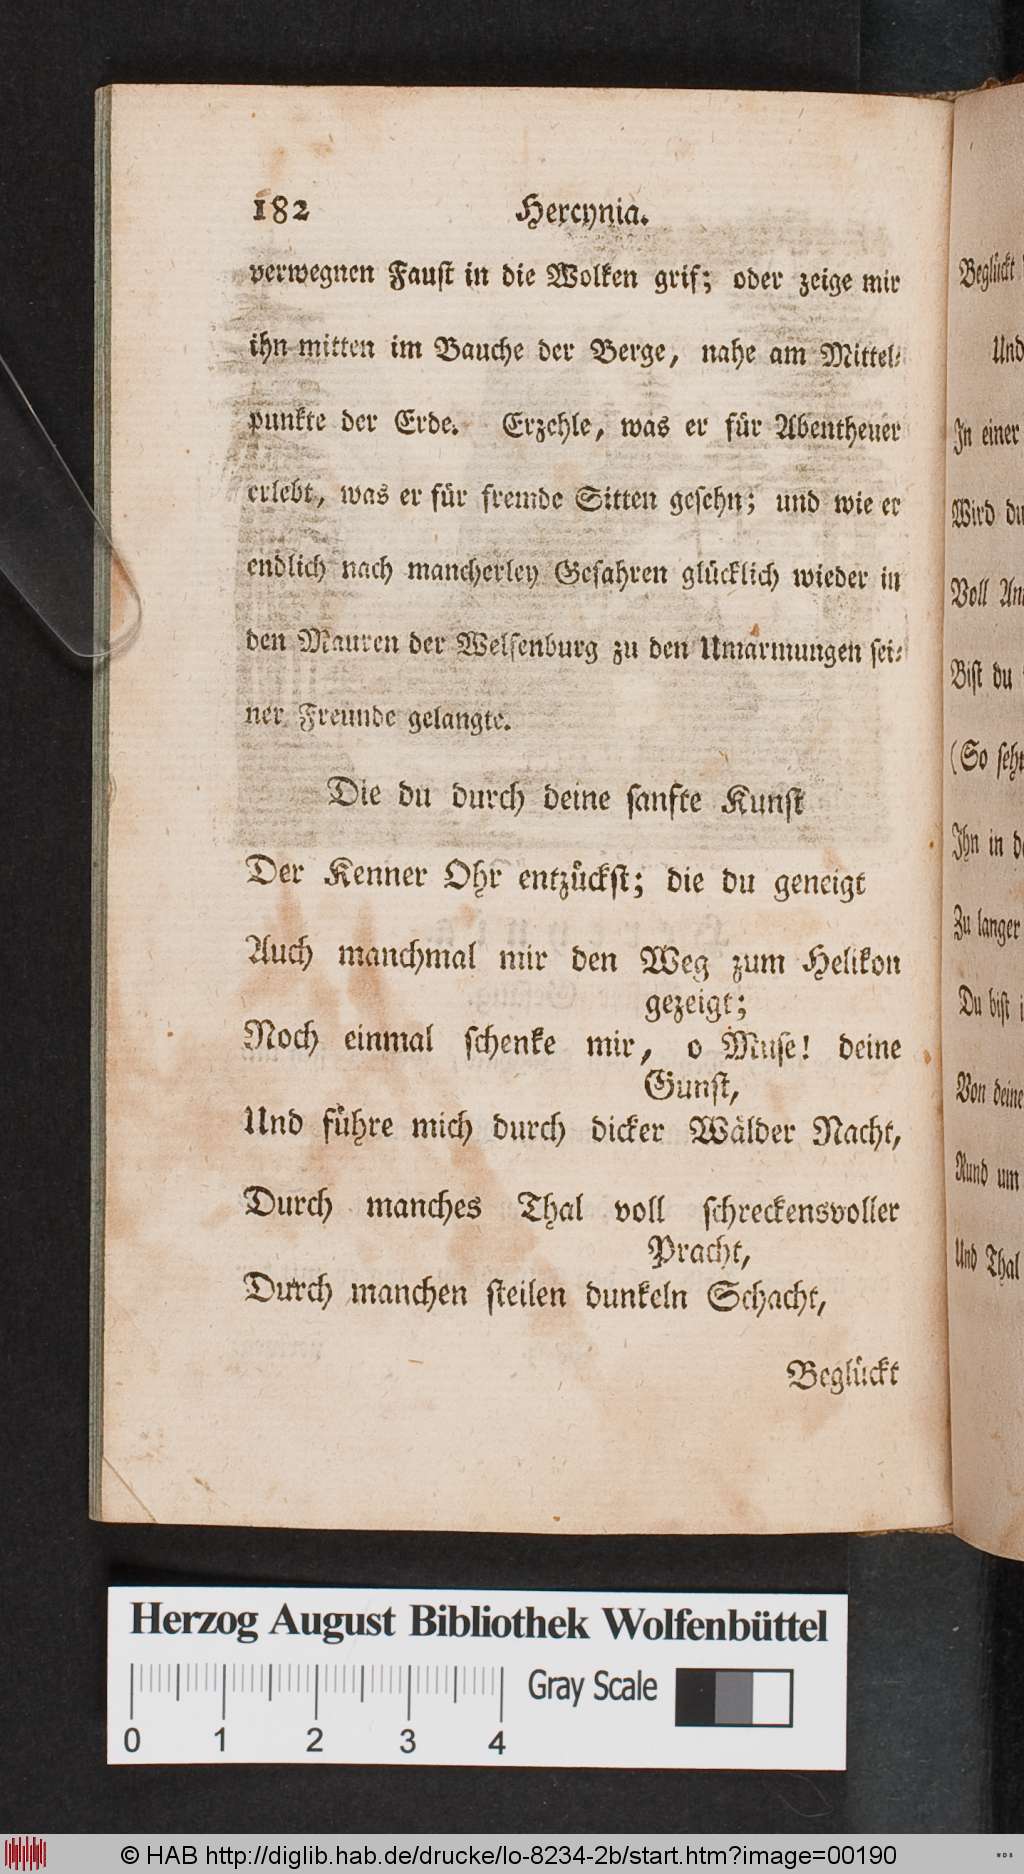 182 Hercynia.
verwegnen Faust in die Wolken grif; oder zeige mir
ihn mitten im Bauche der Berge, nahe am Mittel-
punkte der Erde. Erzehle, was er für Abentheuer
erlebt, was er für fremde Sitten gesehn; und wie er
endlich nach mancherley Gefahren glücklich wieder in
den Mauren der Welfenburg zu den Umarmungen sei-
ner Freunde gelangte.
Die du durch deine sanfte Kunst
Der Kenner Ohr entzückst; die du geneigt
Auch manchmal mir den Weg zum Helikon
gezeigt;
Noch einmal schenke mir, o Muse! deine
Gunst,
Und führe mich durch dicker Wälder Nacht,
Durch manches Thal voll schreckensvoller
Pracht,
Durch manchen steilen dunkeln Schacht,
Beglückt
Beglückt
Und
In einer
Wird du
Voll
Bist du
(So seht
Ihn in
Zu langer
Du bist
Von deine
Rund um
Und Thal
Herzog August Bibliothek Wolfenbüttel
Gray Scale
0 1 2 3 4
© HAB http://diglib.hab.de/drucke/lo-8234-2b/start.htm?image=00190